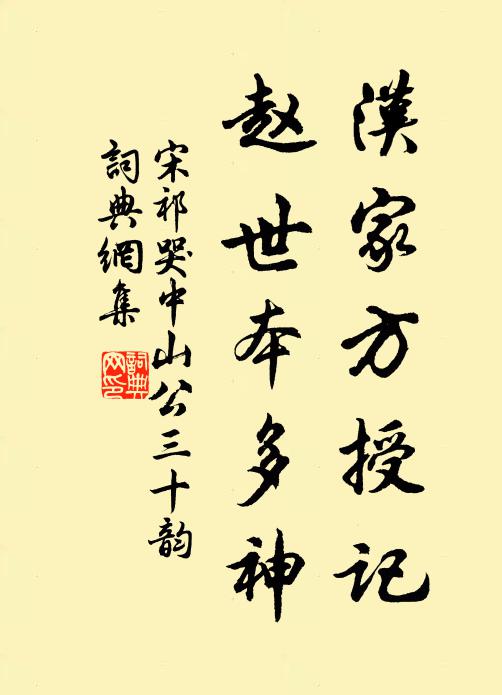 漢家方授记
赵世本多神
宋祁哭中山公三十韵
詞典網集
詞典网印